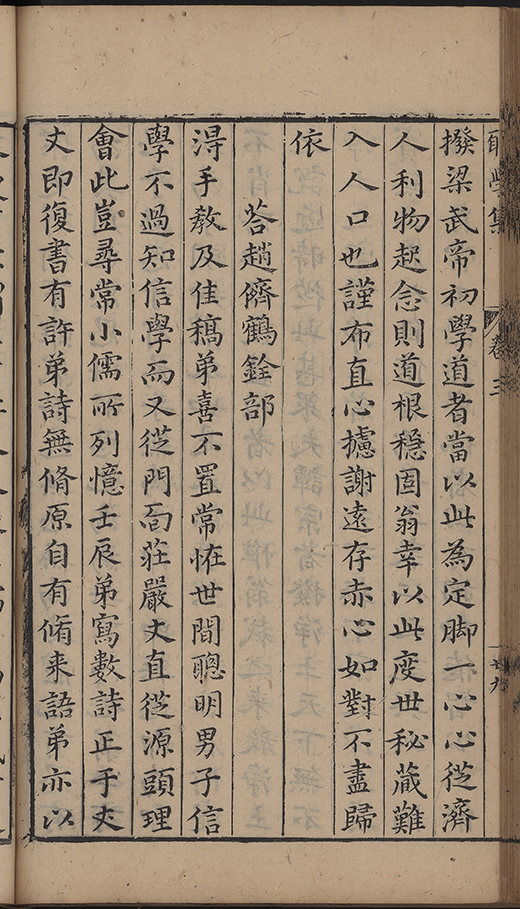 撥梁武帝初學道者當以此為定脚一心心從濟
人利物起念則道根穩固翁幸以此度世秘藏難
入人口也謹布直心攄謝遠存赤心如對不盡歸
依
荅趙儕鶴銓部
淂手教及佳稿弟喜不置常恠世間聰明男子信
學不過知信學而又從門面莊嚴丈直從源頭理
會此豈尋常小儒所列憶壬辰弟寫數詩正手丈
丈即復書有許弟詩無脩原自有脩来語弟亦以
集
卷三
廿九